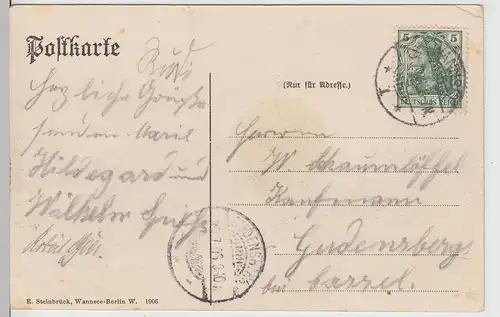 Postkarte
Rudi
(Nur für Adresse.)
5 5
DEUTSCHES REICH
Herzliche Grüße
senden Marie
Hildegard und
Wilhelm
Herren
W. Schaumlöffel
Kaufmann
Gudensberg
bei Cassel.
GUDENSBERG
7.06.
R. Steinbrück, Wannsee-Berlin W. 1906